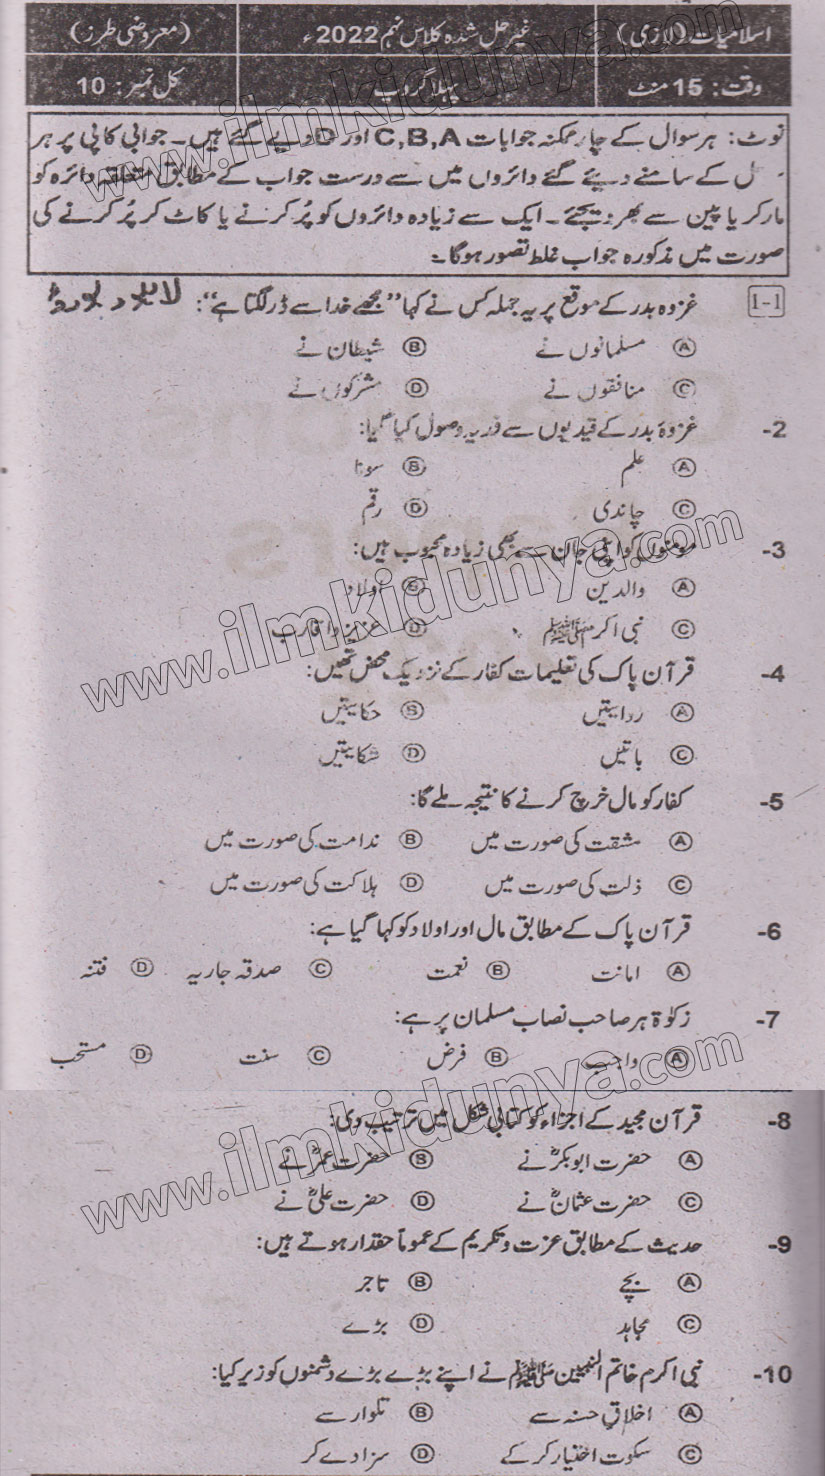 اسلامیات (لازمی) غیر حل شدہ کلاس نہم 2022ء (معروضی طرز)
وقت: 15 منٹ پہلا گروپ کل نمبر: 10
نوٹ: ہر سوال کے چار ممکنہ جوابات C,B,A اور D دیے گئے ہیں۔ جوابی کاپی پر ہر
کے سامنے دیئے گئے دائروں میں سے درست جواب کے مطابق متعلقہ دائرہ کو
مارکر یا پین سے بھر دیجئے۔ ایک سے زیادہ دائروں کو پُر کرنے یا کاٹ کر پُر کرنے کی
صورت میں مذکورہ جواب غلط تصور ہوگا۔
1-1 غزوہ بدر کے موقع پر یہ جملہ کس نے کہا "مجھے خدا سے ڈر لگتا ہے":
A مسلمانوں نے B شیطان نے
C منافقوں نے D مشرکوں نے
2- غزوہ بدر کے قیدیوں سے فدیہ وصول کیا گیا:
A علم B سونا
C چاندی D رقم
3- مومنوں کو اپنی جان سے بھی زیادہ محبوب ہیں:
A والدین B اولاد
C نبی اکرم ﷺ D عزیز و اقارب
4- قرآن پاک کی تعلیمات کفار کے نزدیک محض تھیں:
A روایتیں B حکایتیں
C باتیں D شکایتیں
5- کفار کو مال خرچ کرنے کا نتیجہ ملے گا:
A مشقت کی صورت میں B ندامت کی صورت میں
C ذلت کی صورت میں D ہلاکت کی صورت میں
6- قرآن پاک کے مطابق مال اور اولاد کو کہا گیا ہے:
A امانت B نعمت C صدقہ جاریہ D فتنہ
7- زکوٰۃ ہر صاحب نصاب مسلمان پر ہے:
A واجب B فرض C سنت D مستحب
8- قرآن مجید کے اجزاء کو کتابی شکل میں ترتیب دی:
A حضرت ابوبکرؓ نے B حضرت عمرؓ نے
C حضرت عثمانؓ نے D حضرت علیؓ نے
9- حدیث کے مطابق عزت و تکریم کے عموماً حقدار ہوتے ہیں:
A بچے B تاجر
C مجاہد D بڑے
10- نبی اکرم خاتم النبیین ﷺ نے اپنے بڑے بڑے دشمنوں کو زیر کیا:
A اخلاقِ حسنہ سے B تلوار سے
C سکوت اختیار کر کے D سزا دے کر
www.ilmkidunya.com
www.ilmkidunya.com
www.ilmkidunya.com